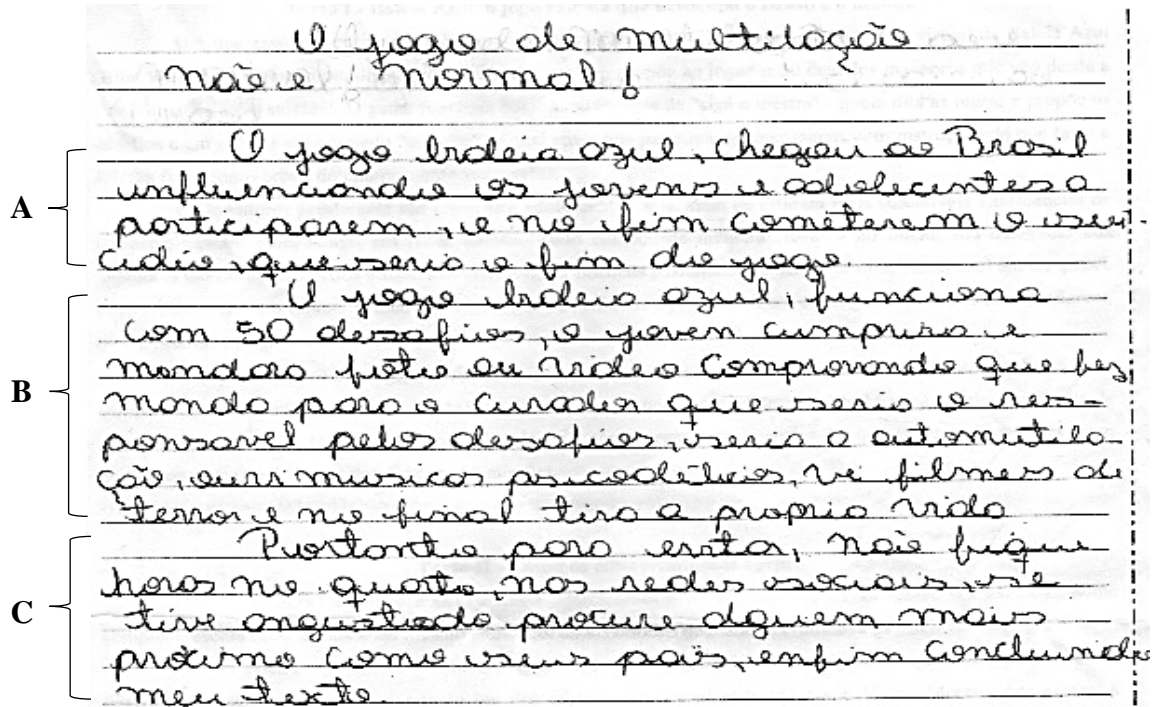 O jogo de multilação
não é normal!
O jogo baleia azul, chegou ao Brasil
influenciando os jovens e adolecentes a
participarem, e no fim cometerem o sui-
A
cidio, que seria o fim do jogo.
O jogo baleia azul, funciona
com 50 desafios, o jovem cumprira e
mandara foto ou video comprovando que fez
B
manda para o curador que seria o res-
ponsavel pelos desafios, seria a automutila-
ção, ouri musicas psicodélicas, vê filmes de
terror e no final tira a propria vida
Portanto para evitar, não fique
horas no quarto, nas redes sociais, se
C
tive angustiado procure alguem mais
proximo como seus pais, enfim concluindo
meu texto.